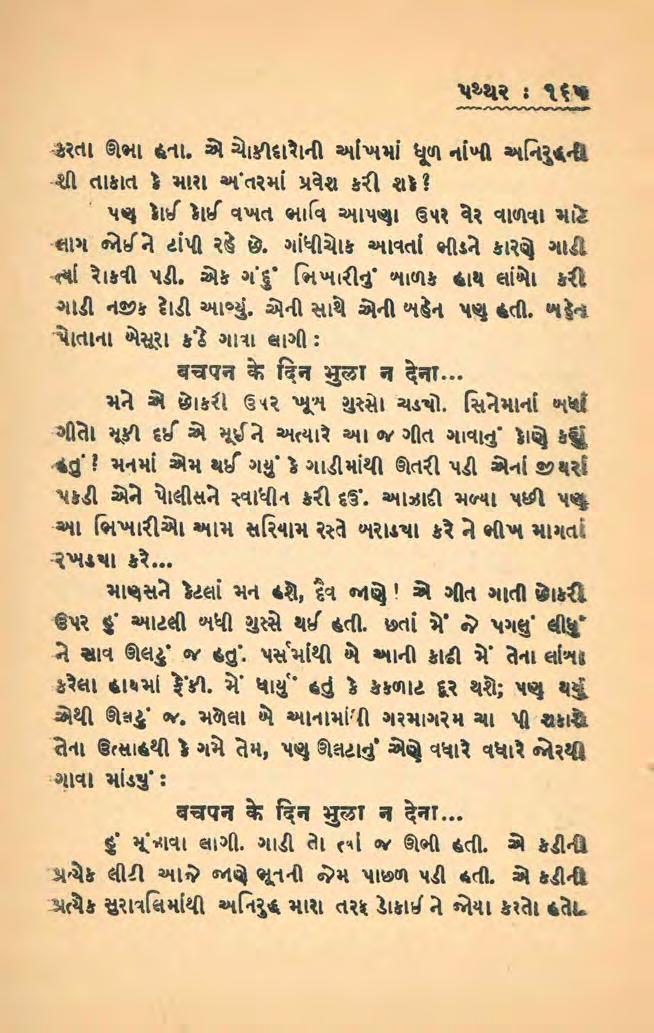 પથ્થર : ૧૬૫
કરતા ઊભા હતા. એ ચોકીદારોની આંખમાં ધૂળ નાંખી અનિરુદ્ધની
શી તાકાત કે મારા અંતરમાં પ્રવેશ કરી શકે?
પણ કોઈ કોઈ વખત ભાવિ આપણા ઉપર વેર વાળવા માટે
લાગ જોઈને ટાંપી રહે છે. ગાંધીચોક આવતાં ભીડને કારણે ગાડી
ત્યાં રોકવી પડી. એક ગંદું ભિખારીનું બાળક હાથ લાંબો કરી
ગાડી નજીક દોડી આવ્યું. એની સાથે એની બહેન પણ હતી. બહેન
પોતાના બેસૂરા કંઠે ગાવા લાગી :
बचपन के दिन भुला न देना...
મને એ છોકરી ઉપર ખૂબ ગુસ્સો ચડયો. સિનેમાનાં બધાં
ગીતો મૂકી દઈ એ મૂઈને અત્યારે આ જ ગીત ગાવાનું કોણે કહ્યું
હતું! મનમાં એમ થઈ ગયું કે ગાડીમાંથી ઊતરી પડી એનાં જીંથરાં
પકડી એને પોલીસને સ્વાધીન કરી દઉં. આઝાદી મળ્યા પછી પણ
આ ભિખારીઓ આમ સરિયામ રસ્તે બરાડયા કરે ને ભીખ માગતાં
રખડયા કરે...
માણસને કેટલાં મન હશે, દૈવ જાણે! એ ગીત ગાતી છોકરી
ઉપર હું આટલી બધી ગુસ્સે થઈ હતી. છતાં મેં જે પગલું લીધું
તે સાવ ઊલટું જ હતું. પર્સમાંથી બે આની કાઢી મેં તેના લાંબા
કરેલા હાથમાં ફેંકી. મેં ધાર્યું હતું કે કકળાટ દૂર થશે; પણ થયું
એથી ઊલટું જ. મળેલા બે આનામાંથી ગરમાગરમ ચા પી શકાશે
તેના ઉત્સાહથી કે ગમે તેમ, પણ ઊલટાનું એણે વધારે વધારે જોરથી
ગાવા માંડયું :
बचपन के दिन भुला न देना...
હું મૂંઝાવા લાગી. ગાડી તો ત્યાં જ ઊભી હતી. એ કડીની
પ્રત્યેક લીટી આજે જાણે ભૂતની જેમ પાછળ પડી હતી. એ કડીની
પ્રત્યેક સુરાવલિમાંથી અનિરુદ્ધ મારા તરફ ડોકાઈ ને જોયા કરતો હતો.